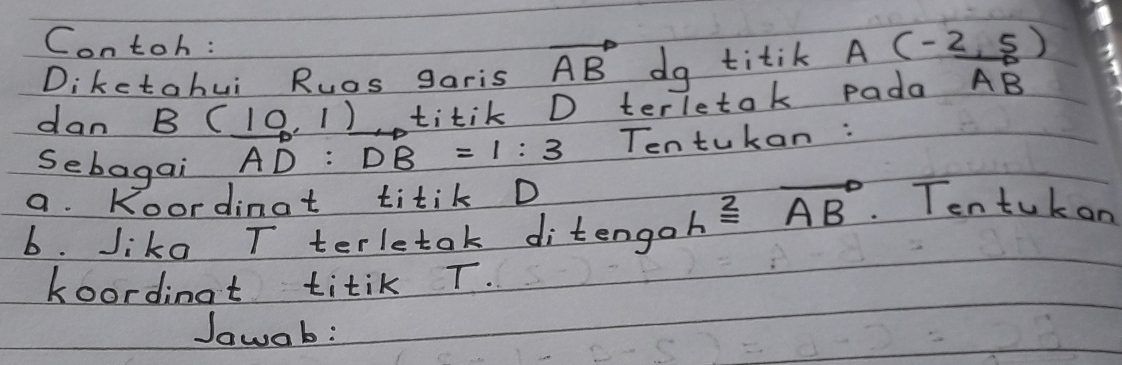 Contoh :
Diketahui Ruas garis AB dg titik A (-2, 5)
dan B (10, 1) titik D terletak pada AB
sebagai AD : DB = 1 : 3 Tentukan :
a. Koordinat titik D
b. Jika T terletak ditengah² AB. Tentukan
koordinat titik T.
Jawab :